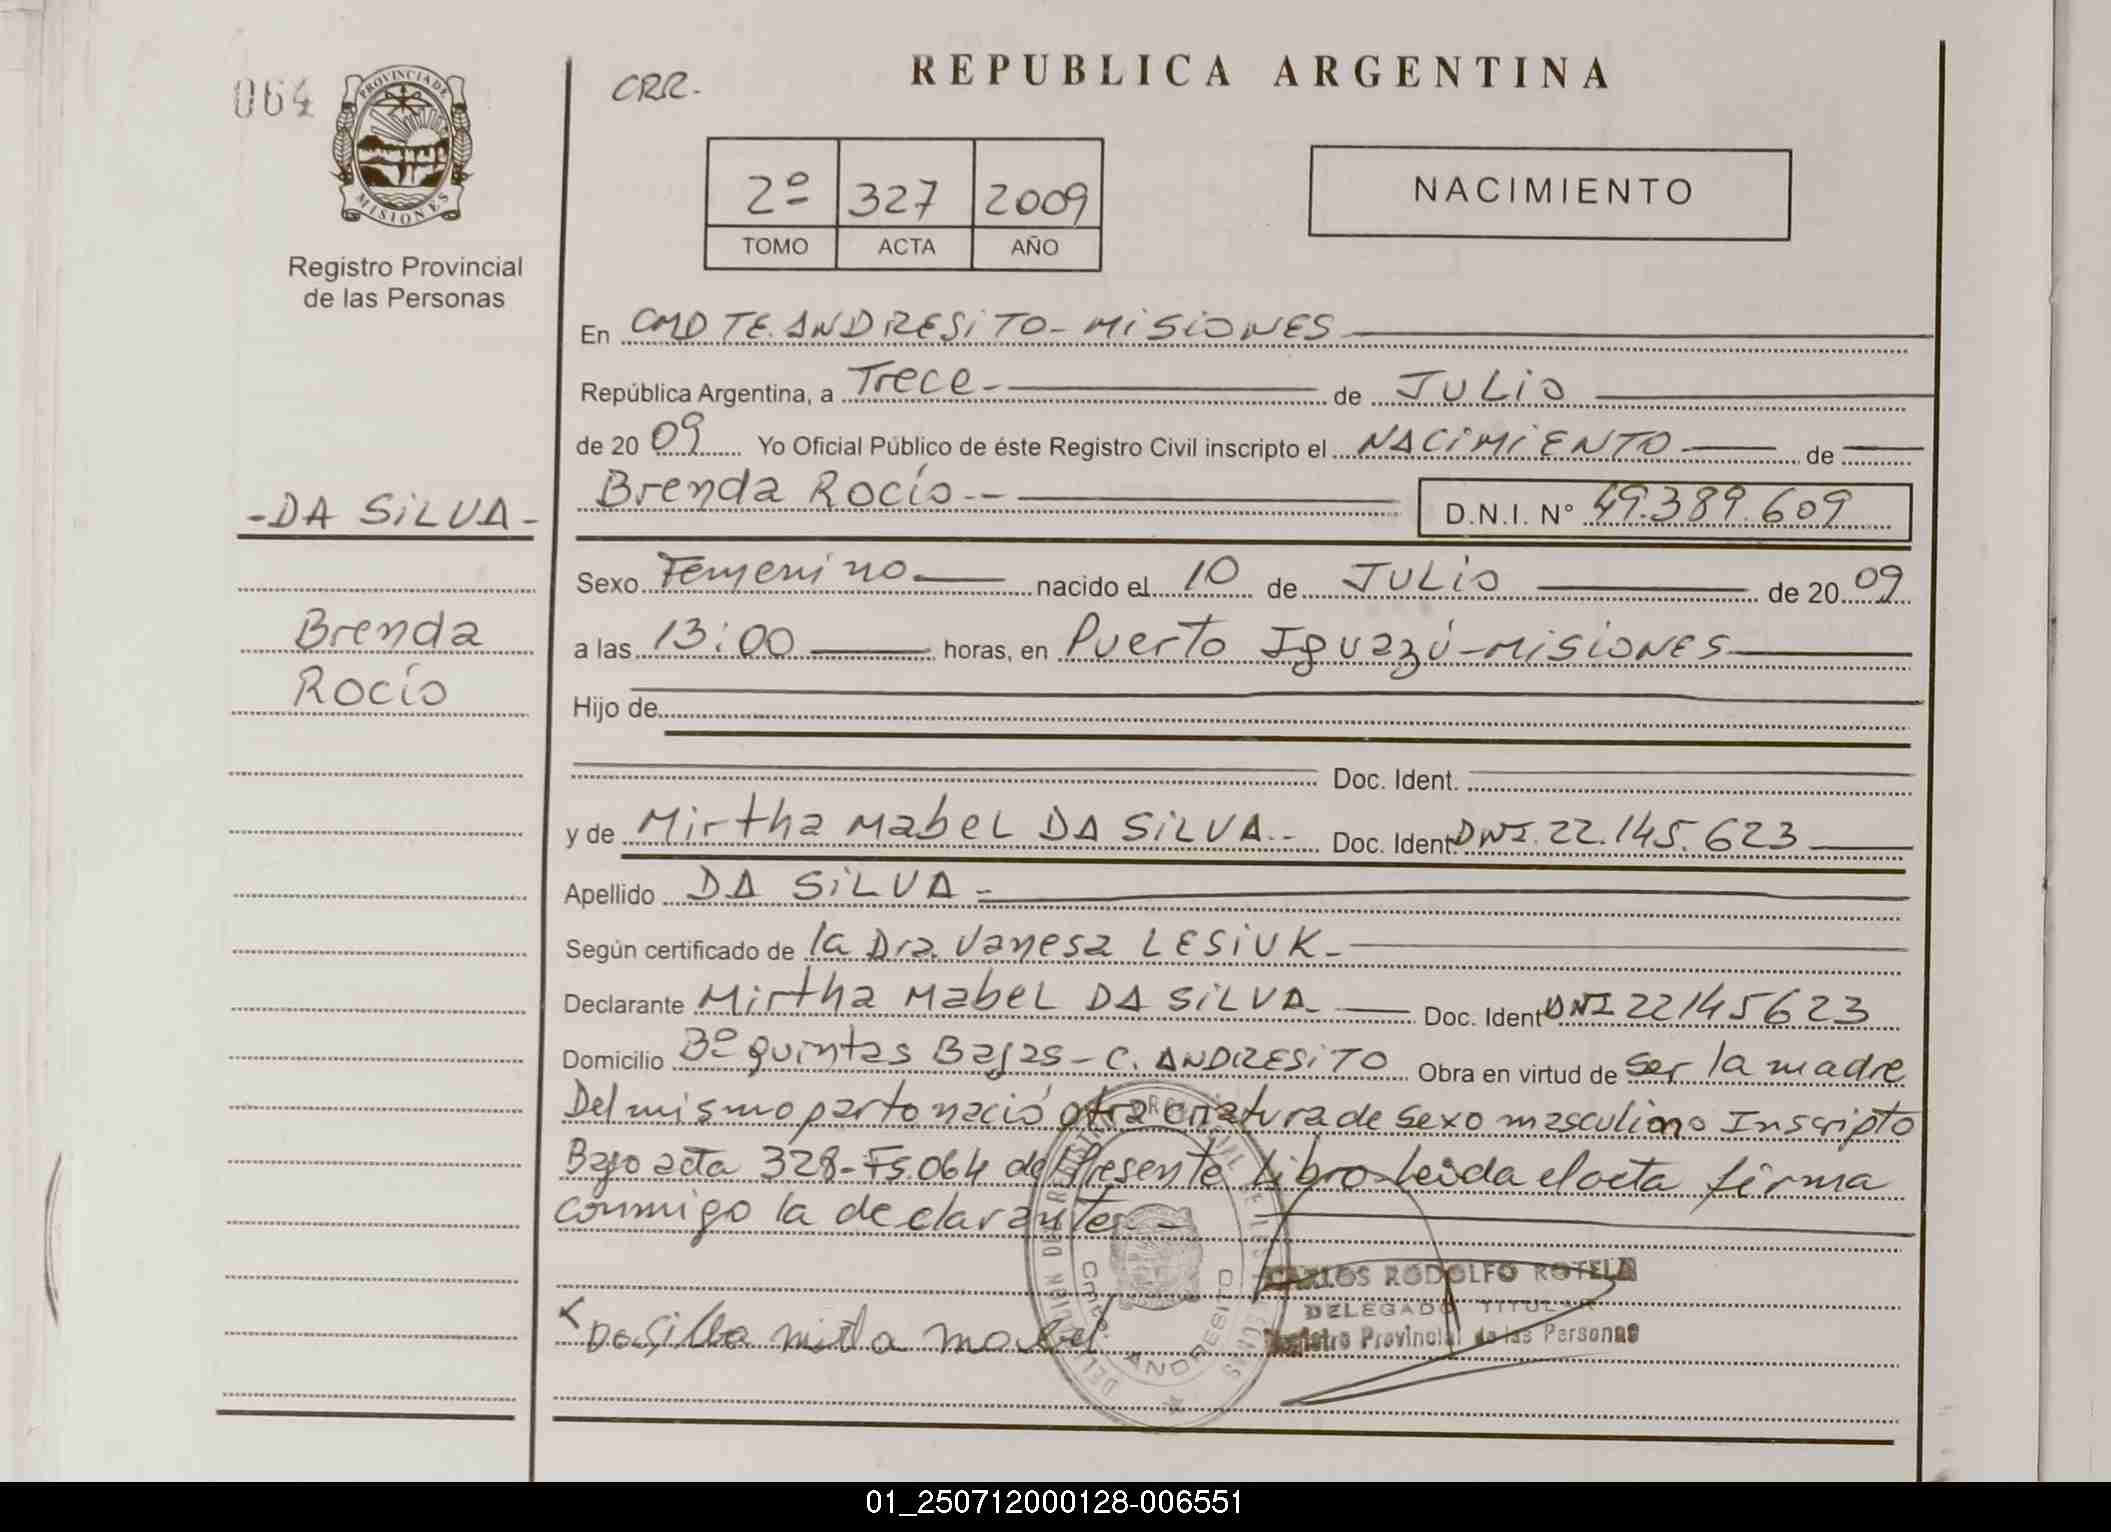 064
PROVINCIA DE
MISIONES
Registro Provincial
de las Personas
CRR.
REPUBLICA ARGENTINA
2º 327 2009
TOMO ACTA AÑO
NACIMIENTO
En CMDTE. ANDRESITO - MISIONES
República Argentina, a Trece - de JULIO
de 2009 Yo Oficial Público de éste Registro Civil inscripto el NACIMIENTO de
Brenda Rocío - - D.N.I. Nº 49.389.609
- DA SILVA -
Brenda
Rocío
Sexo Femenino nacido el 10 de JULIO de 2009
a las 13:00 horas, en Puerto Iguazú - MISIONES
Hijo de
Doc. Ident.
y de Mirtha Mabel DA SILVA - - Doc. Ident. DNI. 22.145.623
Apellido DA SILVA -
Según certificado de la Dra. Vanesa LESIUK -
Declarante Mirtha Mabel DA SILVA - Doc. Ident DNI 22145623
Domicilio Bº quintas Bajas - C. ANDRESITO Obra en virtud de ser la madre
Del mismo parto nació otra criatura de sexo masculino Inscripto
Bajo acta 328 - Fs. 064 del Presente Libro - Leida el acta firma
conmigo la declarante. -
CARLOS RODOLFO ROTELA
DELEGADO TITULAR
Registro Provincial de las Personas
CMTE. ANDRESITO
01_250712000128-006551